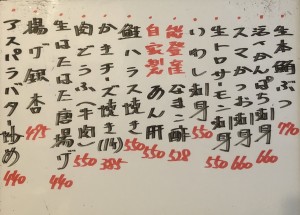 生本鮪ぶつ 770
活〆かんぱち刺身 660
スマかつお刺身 660
生トロサーモン刺身 550
いわし刺身 550
能登産 なまこ酢 528
自家製 あん肝 550
鮭ハラス焼き 550
かきチーズ焼き(1ヶ) 385
肉どうふ(牛肉) 550
生はたはた唐揚げ 440
揚げ銀杏 495
アスパラバター炒め 440